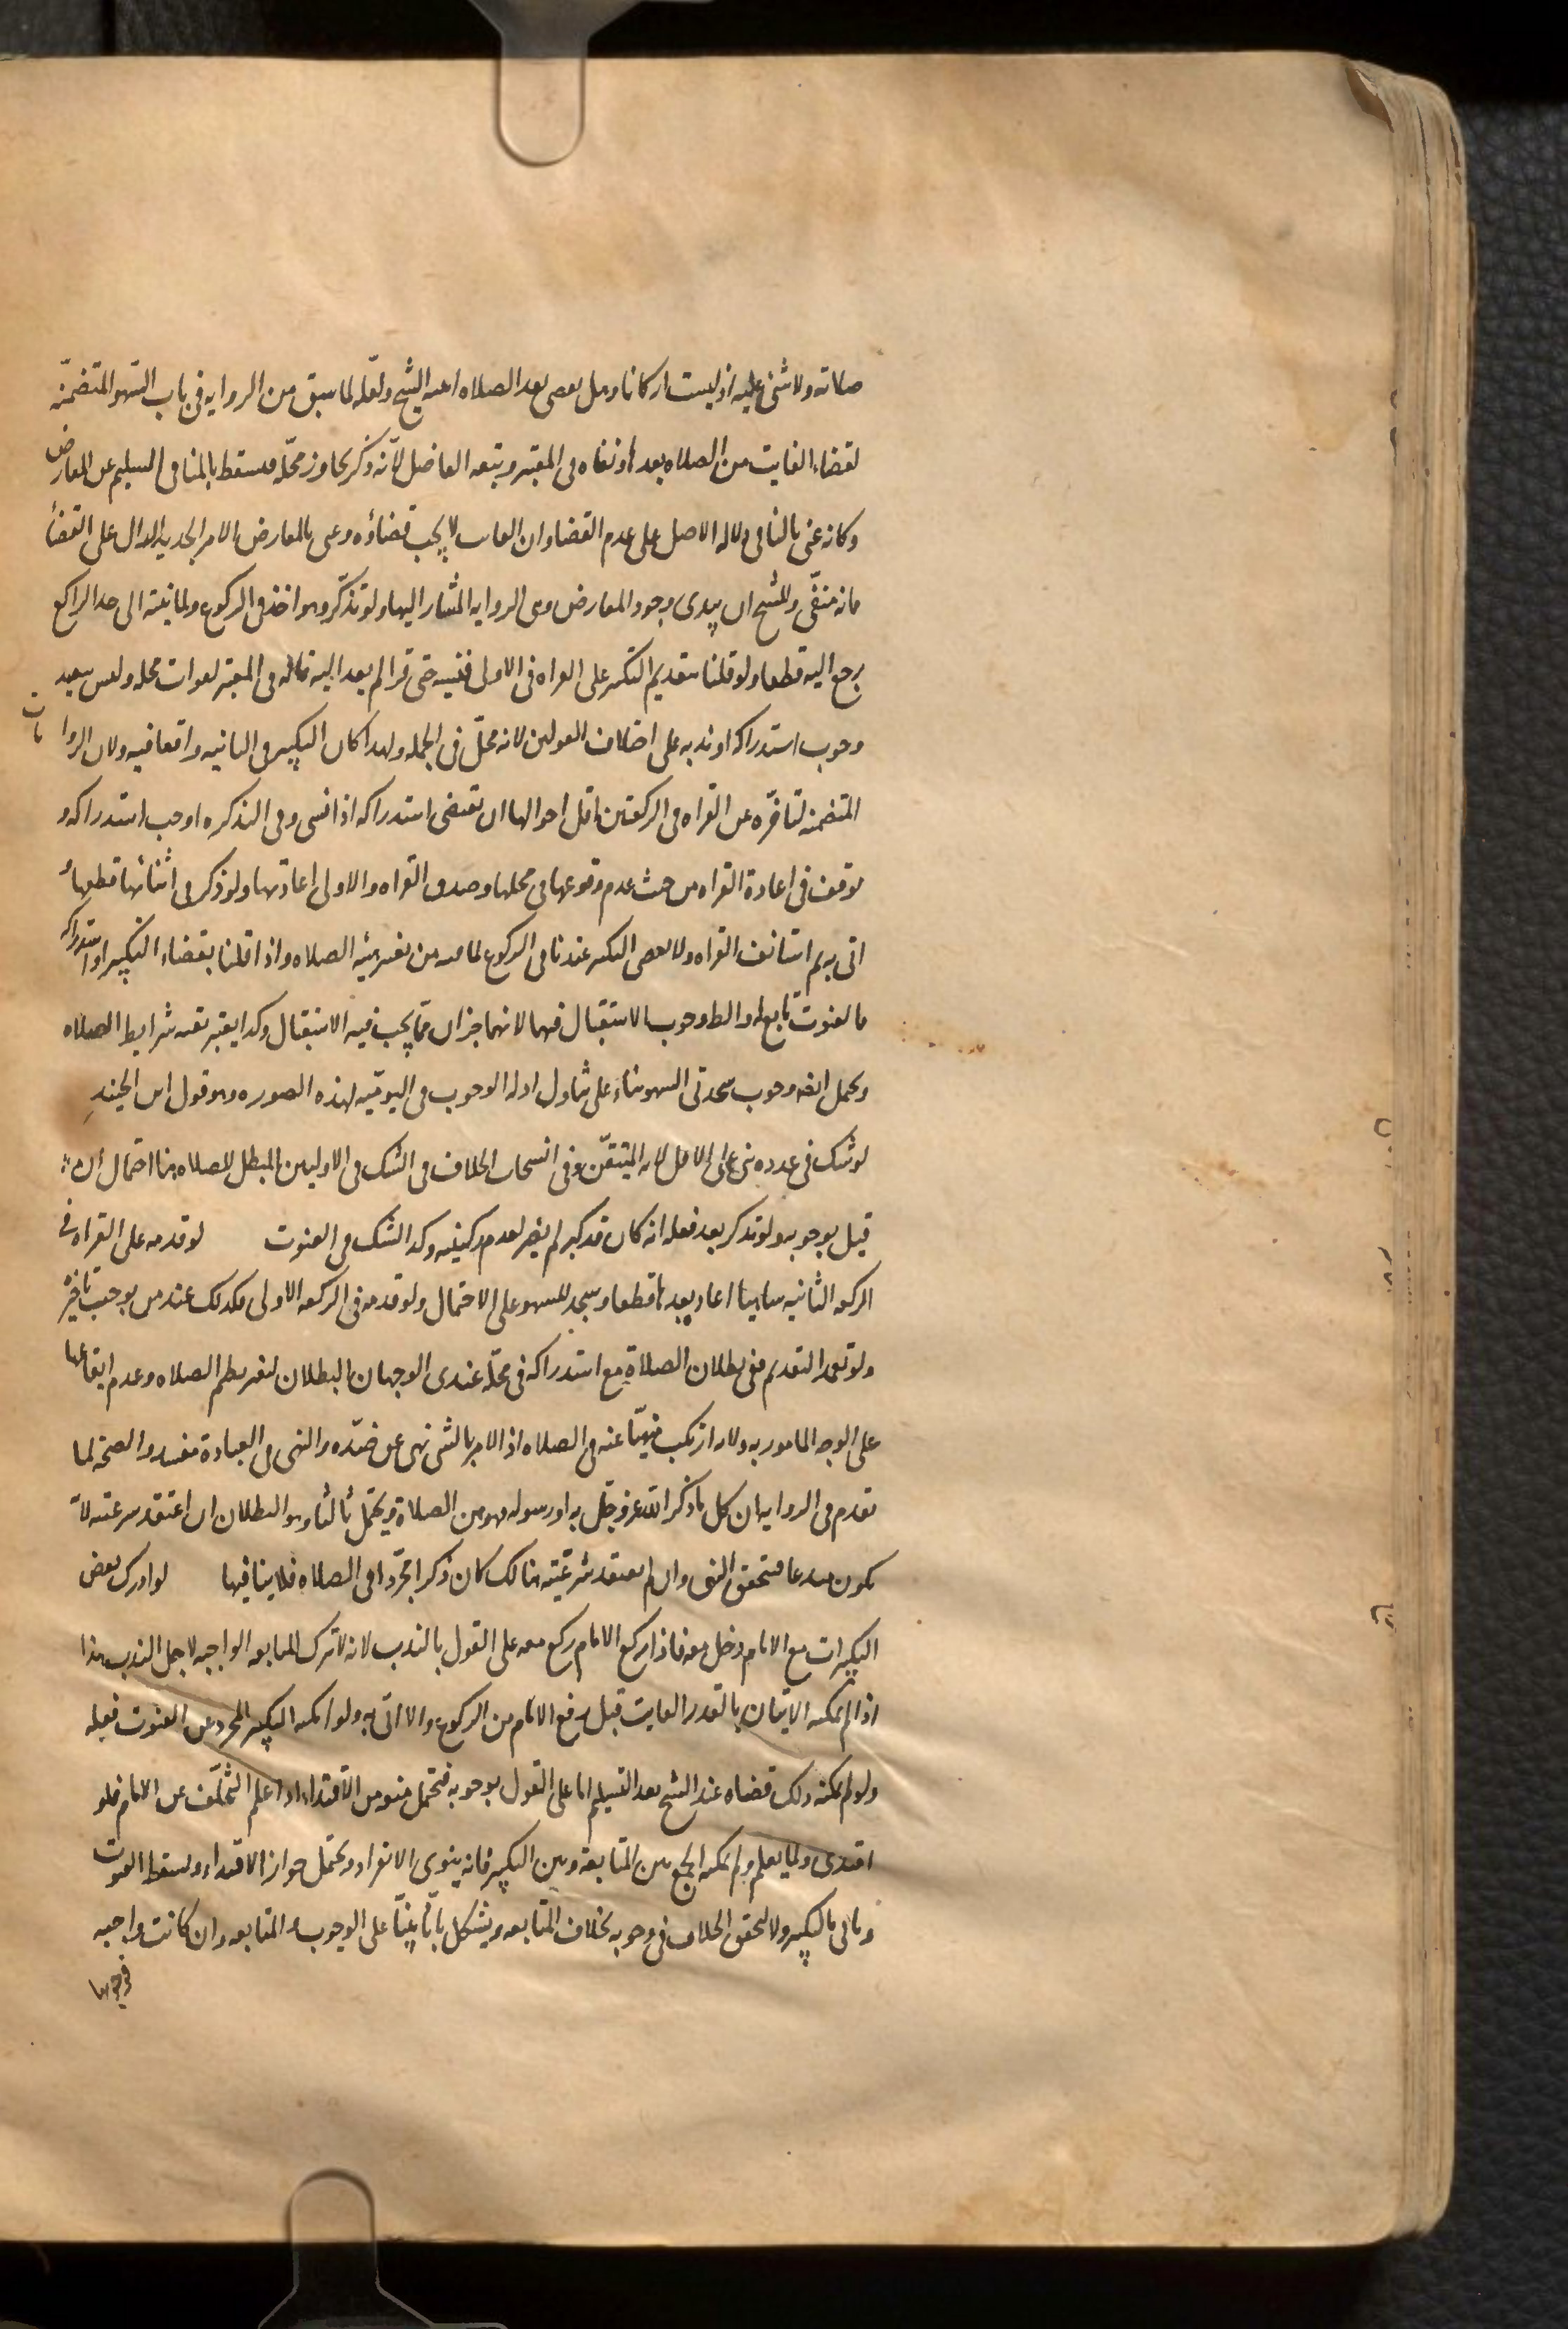 صلاته ولا شئ عليه اذ ليست اركانا وهل يقضى بعد الصلاه اثبته الشيخ ولعله لما سبق من الروايه فى باب السهو المتضمنه
لقضاء الفايت من الصلاه بعدها ونفاه فى المعتبر وتبعه الفاضل لانه ذكر تجاوز محله فيسقط بالمنافى السليم عن المعارض
وكانه عنى بالمنافى دلاله الاصل على عدم القضا وان الفايت لا يجب قضاؤه وعنى بالمعارض الامر الجديد الدال على القضا
فانه منتفى وللشيخ ان يبدى وجود المعارض وهى الروايه المشار اليها ولو تذكر وهو اخذ فى الركوع ولما ينته الى حد الراكع
رجع اليه قطعا ولو قلنا بتقديم التكبير على القراه فى الاولى فنسيه حتى قرا لم يعد اليه قاله فى المعتبر لفوات محله وليس ببعيد
وجوب استدراكه او ندبه على اختلاف القولين لانه محل فى الجمله ولهذا كان التكبير فى الثانيه واقعا فيه ولان الروايات
المتضمنه لتاخره عن القراه فى الركعتين اقل احوالها ان تقتضى استدراكه اذا نسى وفى التذكره اوجب استدراكه و
توقف فى اعادة القراه من حيث عدم وقوعها فى محلها وصدق القراه والاولى اعادتها ولو ذكر فى اثنائها قطعها و
اتى به ثم استانف القراه ولا يقضى التكبير عندنا فى الركوع لما فيه من تغيير هيئه الصلاه واذا قلنا بقضاء التكبير او استدراكه
فالقنوت تابع له والظ وجوب الاستقبال فيهما لانهما جزان مما يجب فيه الاستقبال وكذا يعتبر بقيه شرايط الصلاه
ويحتمل ايضا وجوب سجدتى السهو بناء على تناول ادله الوجوب فى اليوميه لهذه الصوره وهو قول ابن الجنيد
لو شك فى عدده بنى على الاقل لانه المتيقن وفى انسحاب الخلاف فى الشك فى الاوليين المبطل للصلاه هنا احتمال ان
قيل بوجوبه ولو تذكر بعد فعله انه كان قد كبر لم يضر لعدم ركنيته وكذا الشك فى القنوت لو قدمه على القراه فى
الركعه الثانيه ساهيا اعاد بعدها قطعا وسجد للسهو على الاحتمال ولو قدمه فى الركعه الاولى فكذلك عند من يوجب تاخره
ولو تعمد التقديم ففى بطلان الصلاة مع استدراكه فى محله عندى الوجهان البطلان لتغير نظم الصلاه وعدم ايقاعها
على الوجه المامور به ولانه ارتكب منهيا عنه فى الصلاه اذ الامر بالشئ نهى عن ضده والنهى فى العبادة مفسد والصحة لما
تقدم فى الروايه ان كل ما ذكر الله عز وجل به او رسوله فهو من الصلاة ويحتمل ثالثا وهو البطلان ان اعتقد شرعيته لانه
يكون مبدعا فيتحقق النهى وان لم يعتقد شرعيته هنالك كان ذكرا مجردا فى الصلاه فلا ينافيها لو ادرك بعض
التكبيرات مع الامام دخل معه فاذا ركع الامام ركع معه على القول بالندب لانه لا تترك المتابعه الواجبه لاجل الندب هذا
اذا لم يمكنه الاتيان بالقدر الفايت قبل رفع الامام من الركوع والا اتى به ولو امكنه التكبير المجرد عن القنوت فعله
ولو لم يمكنه ذلك قضاه عند الشيخ بعد التسليم اما على القول بوجوبه فيحتمل منعه من الاقتداء اذا علم التخلف عن الامام فلو
اقتدى ولما يعلم ولم يمكنه الجمع بين المتابعه وبين التكبير فانه ينوى الانفراد ويحتمل جواز الاقتداء ويسقط القنوت
وياتى بالتكبير ولا لتحقق الخلاف فى وجوبه بخلاف المتابعه ويشكل بانا بينا على الوجوب و المتابعه وان كانت واجبه